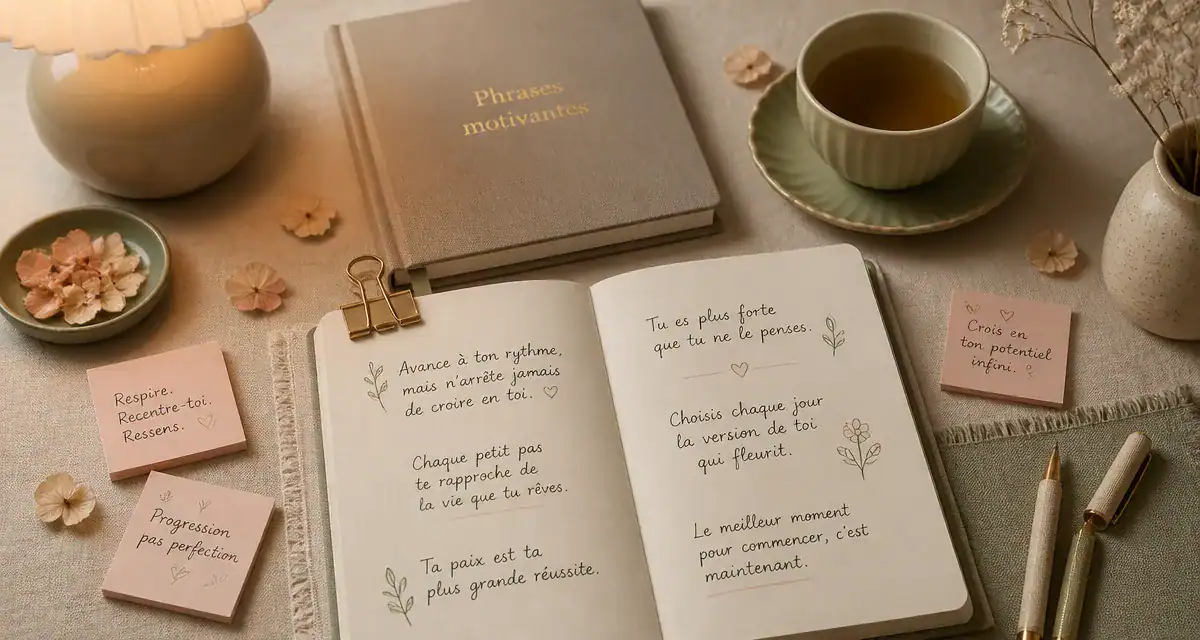 Phrases
motivantes
Avance à ton rythme,
mais n'arrête jamais
de croire en toi.
Chaque petit pas
te rapproche de
la vie que tu rêves.
Ta paix est ta
plus grande réussite.
Tu es plus forte
que tu ne le penses.
Choisis chaque jour
la version de toi
qui fleurit.
Le meilleur moment
pour commencer, c'est
maintenant.
Respire.
Recentre-toi.
Ressens.
Progression
pas perfection
Crois en
ton potentiel
infini.